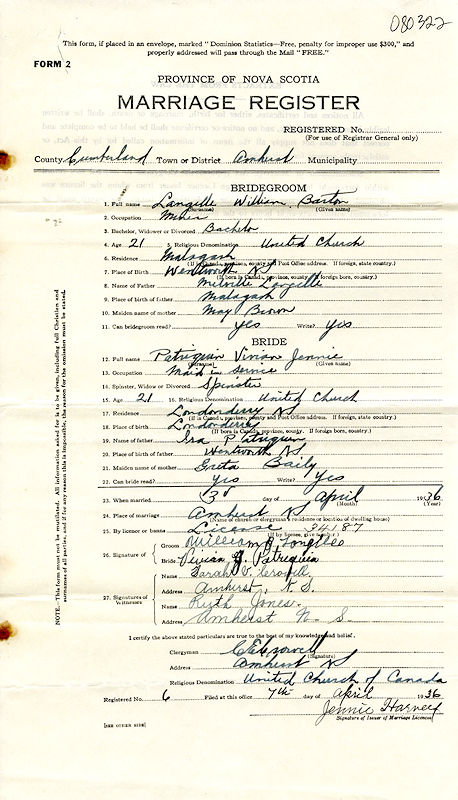 080322
This form, if placed in an envelope, marked "Dominion Statistics—Free, penalty for improper use $300," and
properly addressed will pass through the Mail "FREE."
FORM 2
PROVINCE OF NOVA SCOTIA
MARRIAGE REGISTER
REGISTERED No.
(For use of Registrar General only)
County Cumberland Town or District Amherst Municipality
BRIDEGROOM
1. Full name Langille William Barton
(Surname) (Given name)
2. Occupation Miner
3. Bachelor, Widower or Divorced Bachelor
4. Age 21 5. Religious Denomination United Church
6. Residence Malagash
(If in Canada, province, county and Post Office address. If foreign, state country)
7. Place of Birth Wentworth NS
(If born in Canada, province, county. If foreign born, country.)
8. Name of Father Melville Langille
9. Place of birth of father Malagash
10. Maiden name of mother May
11. Can bridegroom read? yes Write? yes
BRIDE
12. Full name Patriquin Vivian Jennie
(Surname) (Given name)
13. Occupation Maid in Service
14. Spinster, Widow or Divorced Spinster
15. Age 21 16. Religious Denomination United Church
17. Residence Londonderry NS
(If in Canada, province, county and Post Office address. If foreign, state country.)
18. Place of birth Londonderry
(If born in Canada, province, county. If foreign born, country.)
19. Name of father Ira P Patriquin
20. Place of birth of father Wentworth NS
21. Maiden name of mother Greta Baily
22. Can bride read? yes Write? yes
23. When married 3rd day of April 1936
(Month) (Year)
24. Place of marriage Amherst NS
(Name of church or clergyman's residence or location of dwelling house)
25. By licence or banns License 34187
(If by license, give number.)
26. Signature of Groom William B Langille
Bride Vivian J. Patriquin
27. Signatures of Witnesses Name Sarah V. Crowell
Address Amherst, N.S.
Name Ruth Jones.
Address Amherst N. S.
I certify the above stated particulars are true to the best of my knowledge and belief.
Clergyman Crowell
(Signature)
Address Amherst NS
Religious Denomination United Church of Canada
Registered No. 6 Filed at this office 7th day of April 1936
Jennie Harvey
Signature of Issuer of Marriage Licences
[SEE OTHER SIDE]
NOTE.—This form must not be mutilated. All information asked for is to be given, including full Christian and
surnames of all parties, and if for any reason this is impossible, the reason for the omission must be stated.